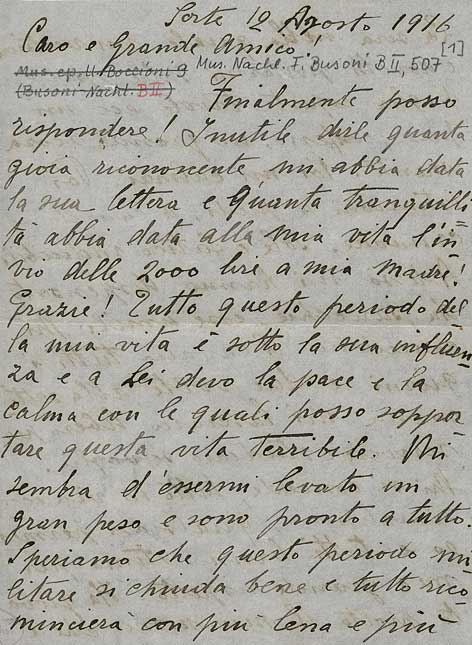 Sorte 12 Agosto 1916
Caro e Grande Amico!
[1]
Mus. ep. U. Boccioni 9
Mus. Nachl. F. Busoni B II, 507
(Busoni-Nachl. B II)
Finalmente posso
rispondere! Inutile dirle quanta
gioia riconoscente mi abbia data
la sua lettera e quanta tranquilli=
tà abbia data alla mia vita l'in=
vio delle 2000 lire a mia madre!
Grazie! Tutto questo periodo del
la mia vita è sotto la sua influen=
za e a Lei devo la pace e la
calma con le quali posso soppor
tare questa vita terribile. Mi
sembra d'essermi levato un
gran peso e sono pronto a tutto.
Speriamo che questo periodo mi
litare si chiuda bene e tutto rico=
mincierà con più lena e più